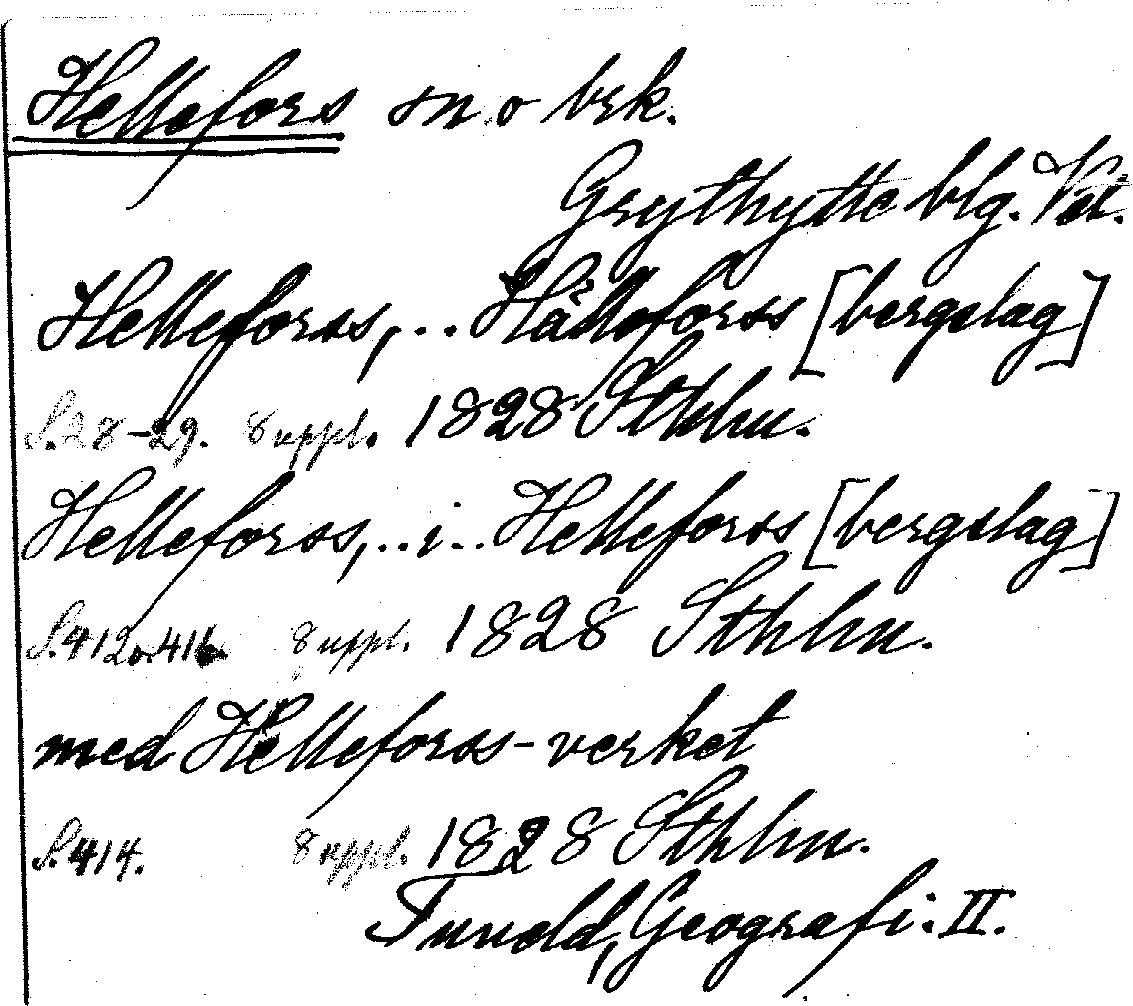 Hellefors sn o brk.
Grythytte blg. Vstm.
Helleforss, .. Hälleforss [bergslag]
S. 28-29. 8 uppl. 1828 Sthlm.
Helleforss, .. i .. Helleforss [bergslag]
S. 412 o. 416 8 uppl. 1828 Sthlm.
med Helleforss-verket
S. 414. 8 uppl. 1828 Sthlm.
Tuneld, Geografi. II.